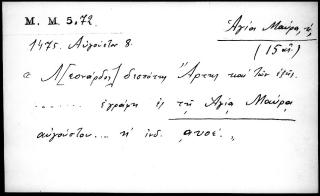 M. M. 5,72
Ἁγία Μαύρα,
1475. Αὐγούστου 8.
(15 αἰ.)
Λ[εονάρδος] δεσπότης Ἄρτης καὶ τῶν ἑξῆς
......... ἐγράφη ἐς τῇ Ἁγίᾳ Μαύρᾳ
αὐγούστου... η' ἰνδ. αυοε.